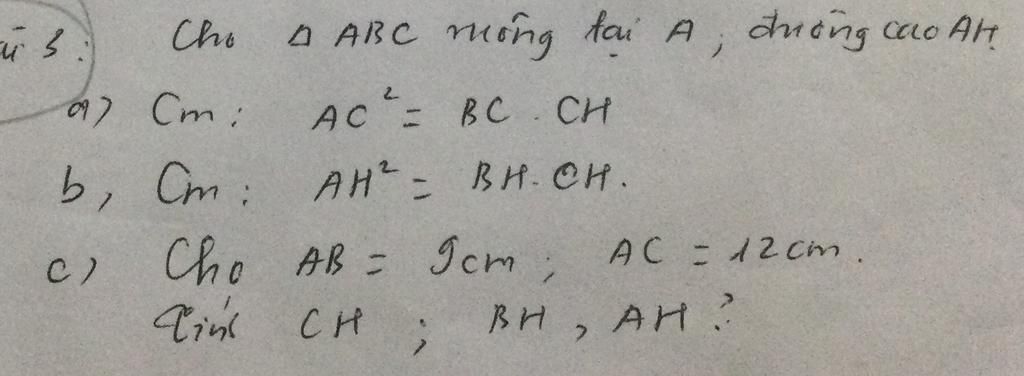 3: Cho Δ ABC vuông tại A, đường cao AH.
a) Cm: AC² = BC . CH
b, Cm: AH² = BH . CH.
c) Cho AB = 9cm; AC = 12cm.
Tính CH; BH, AH?